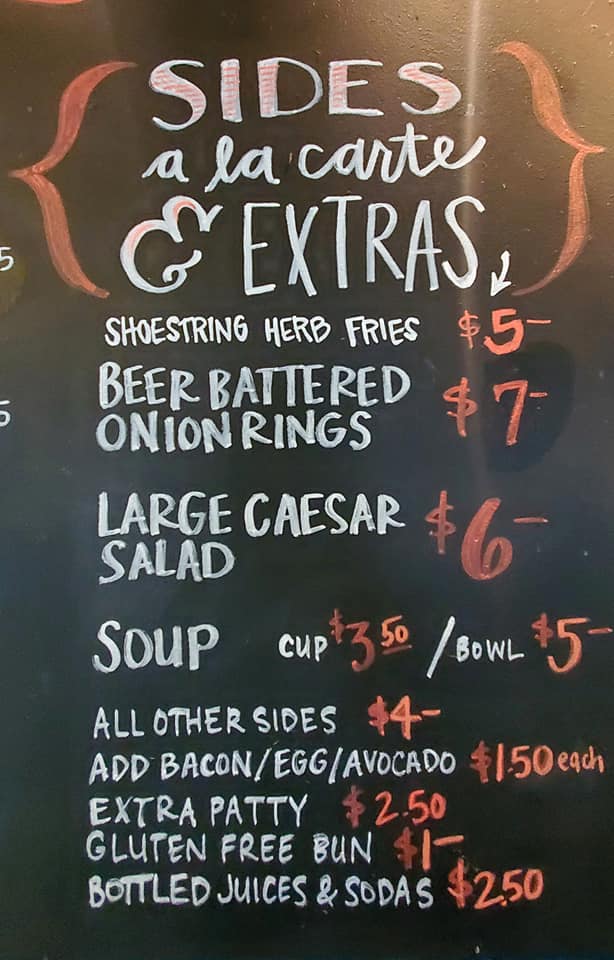 SIDES
a la carte
& EXTRAS
SHOESTRING HERB FRIES $5-
BEER BATTERED
ONION RINGS $7-
LARGE CAESAR
SALAD $6-
SOUP CUP $3.50 / BOWL $5-
ALL OTHER SIDES $4-
ADD BACON/EGG/AVOCADO $1.50 each
EXTRA PATTY $2.50
GLUTEN FREE BUN $1-
BOTTLED JUICES & SODAS $2.50